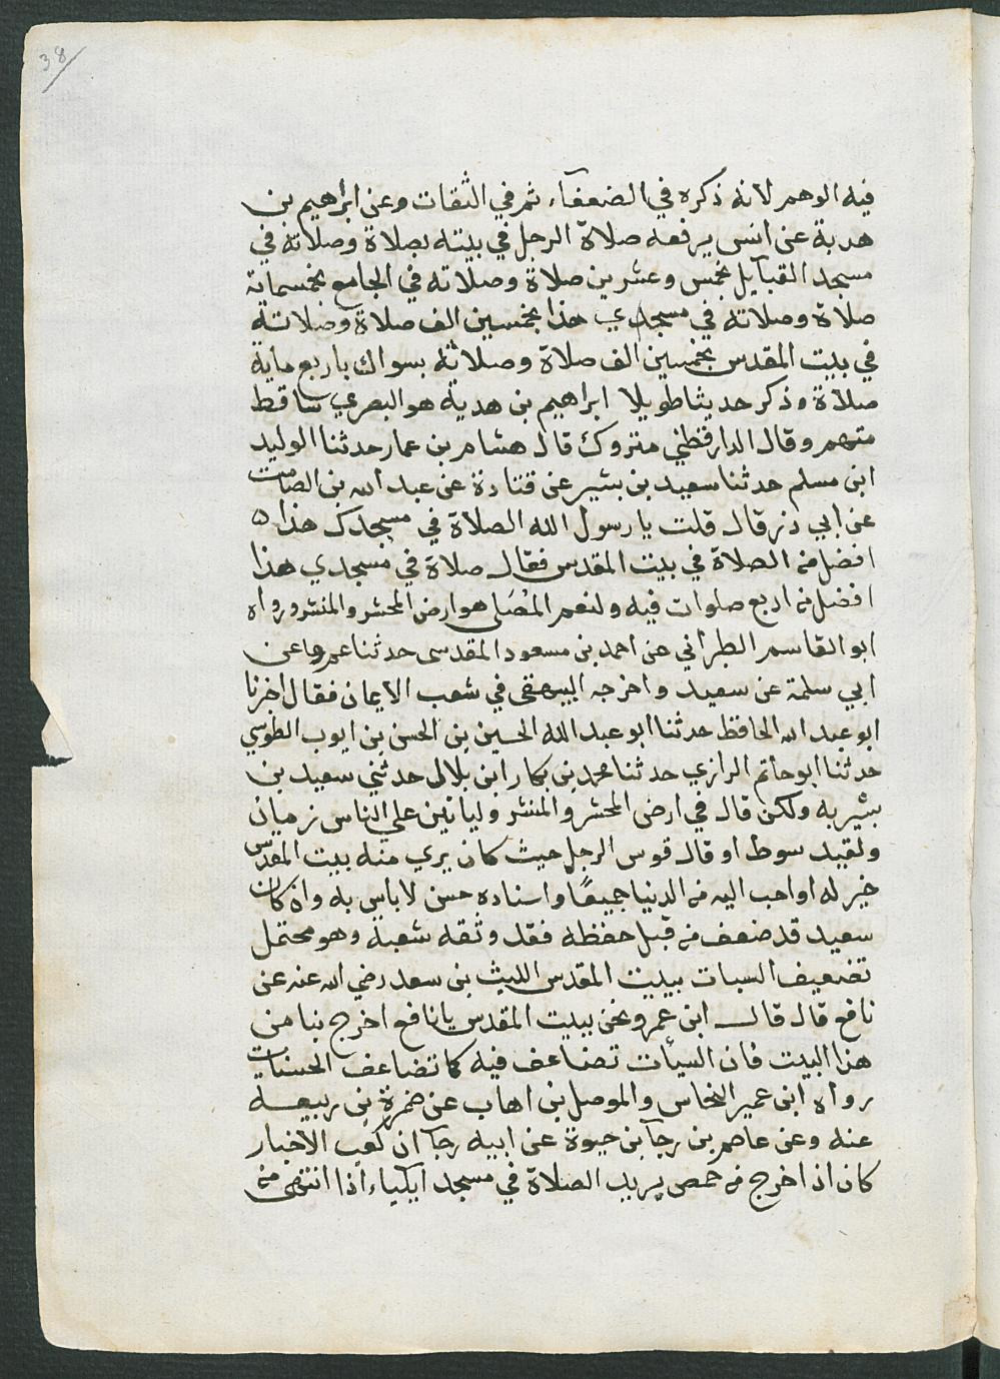 38
فيه الوهم لانه ذكره في الضعفآء ثم في الثقات وعن ابراهيم بن
هدبة عن انس يرفعه صلاة الرجل في بيته بصلاة وصلاته في
مسجد القبآيل بخمس وعشرين صلاة وصلاته في الجامع بخمسماتة
صلاة وصلاته في مسجدي هذا بخمسين الف صلاة وصلاته
في بيت المقدس بخمسين الف صلاة وصلاته بسواك باربع مايه
صلاة وذكر حديثا طويلا ابراهيم بن هدية هو البصري ساقط
متهم وقال الدارقطني متروك قال هشام بن عمار حدثنا الوليد
ابن مسلم حدثنا سعيد بن بشير عن قتادة عن عبد الله بن الصامت
عن ابي ذر قال قلت يا رسول الله الصلاة في مسجدك هذا ه
افضل من الصلاة في بيت المقدس فقال صلاة في مسجدي هذا
افضل من اربع صلوات فيه ولنعم المُصَلى هو ارض المحشر والمنشر ورواه
ابو القاسم الطبراني عن احمد بن مسعود المقدسى حدثنا عمرو عن
ابي سلمة عن سعيد واخرجه البيهقى في شعب الايمان فقال اخرنا
ابو عبد الله الحافظ حدثنا ابو عبد الله الحسين بن الحسن بن ايوب الطوسي
حدثنا ابو حاتم الرازي حدثنا محمد بن بكار ابن بلال حدثني سعيد بن
بشير به ولكن قال في ارض المحشر والمنشر ولياتين علي الناس زمان
ولقيد سوط او قال قوس الرجل حيث كان يري منه بيت المقدس
خير له او احب اليه من الدنيا جميعًا واسناده حسن لا باس به وان كان
سعيد قد ضعف من قبل حفظه فقد وثقه شعبة وهو محتمل
تضعيف السيات ببيت المقدس الليث بن سعد رضي الله عنه عن
نافع قال قال ابن عمر ونحن ببيت المقدس يا نافع اخرج بنا من
هذا البيت فان السيأت تضاعف فيه كما تضاعف الحسنات
رواه ابن عمير النحاس والموصل بن اهاب عن ضمرة بن ربيعه
عنه وعن عاصم بن رجآ بن حيوة عن ابيه رجآ ان كعب الاخبار
كان اذا خرج من حمص يريد الصلاة في مسجد ايلياء اذا انتهى من